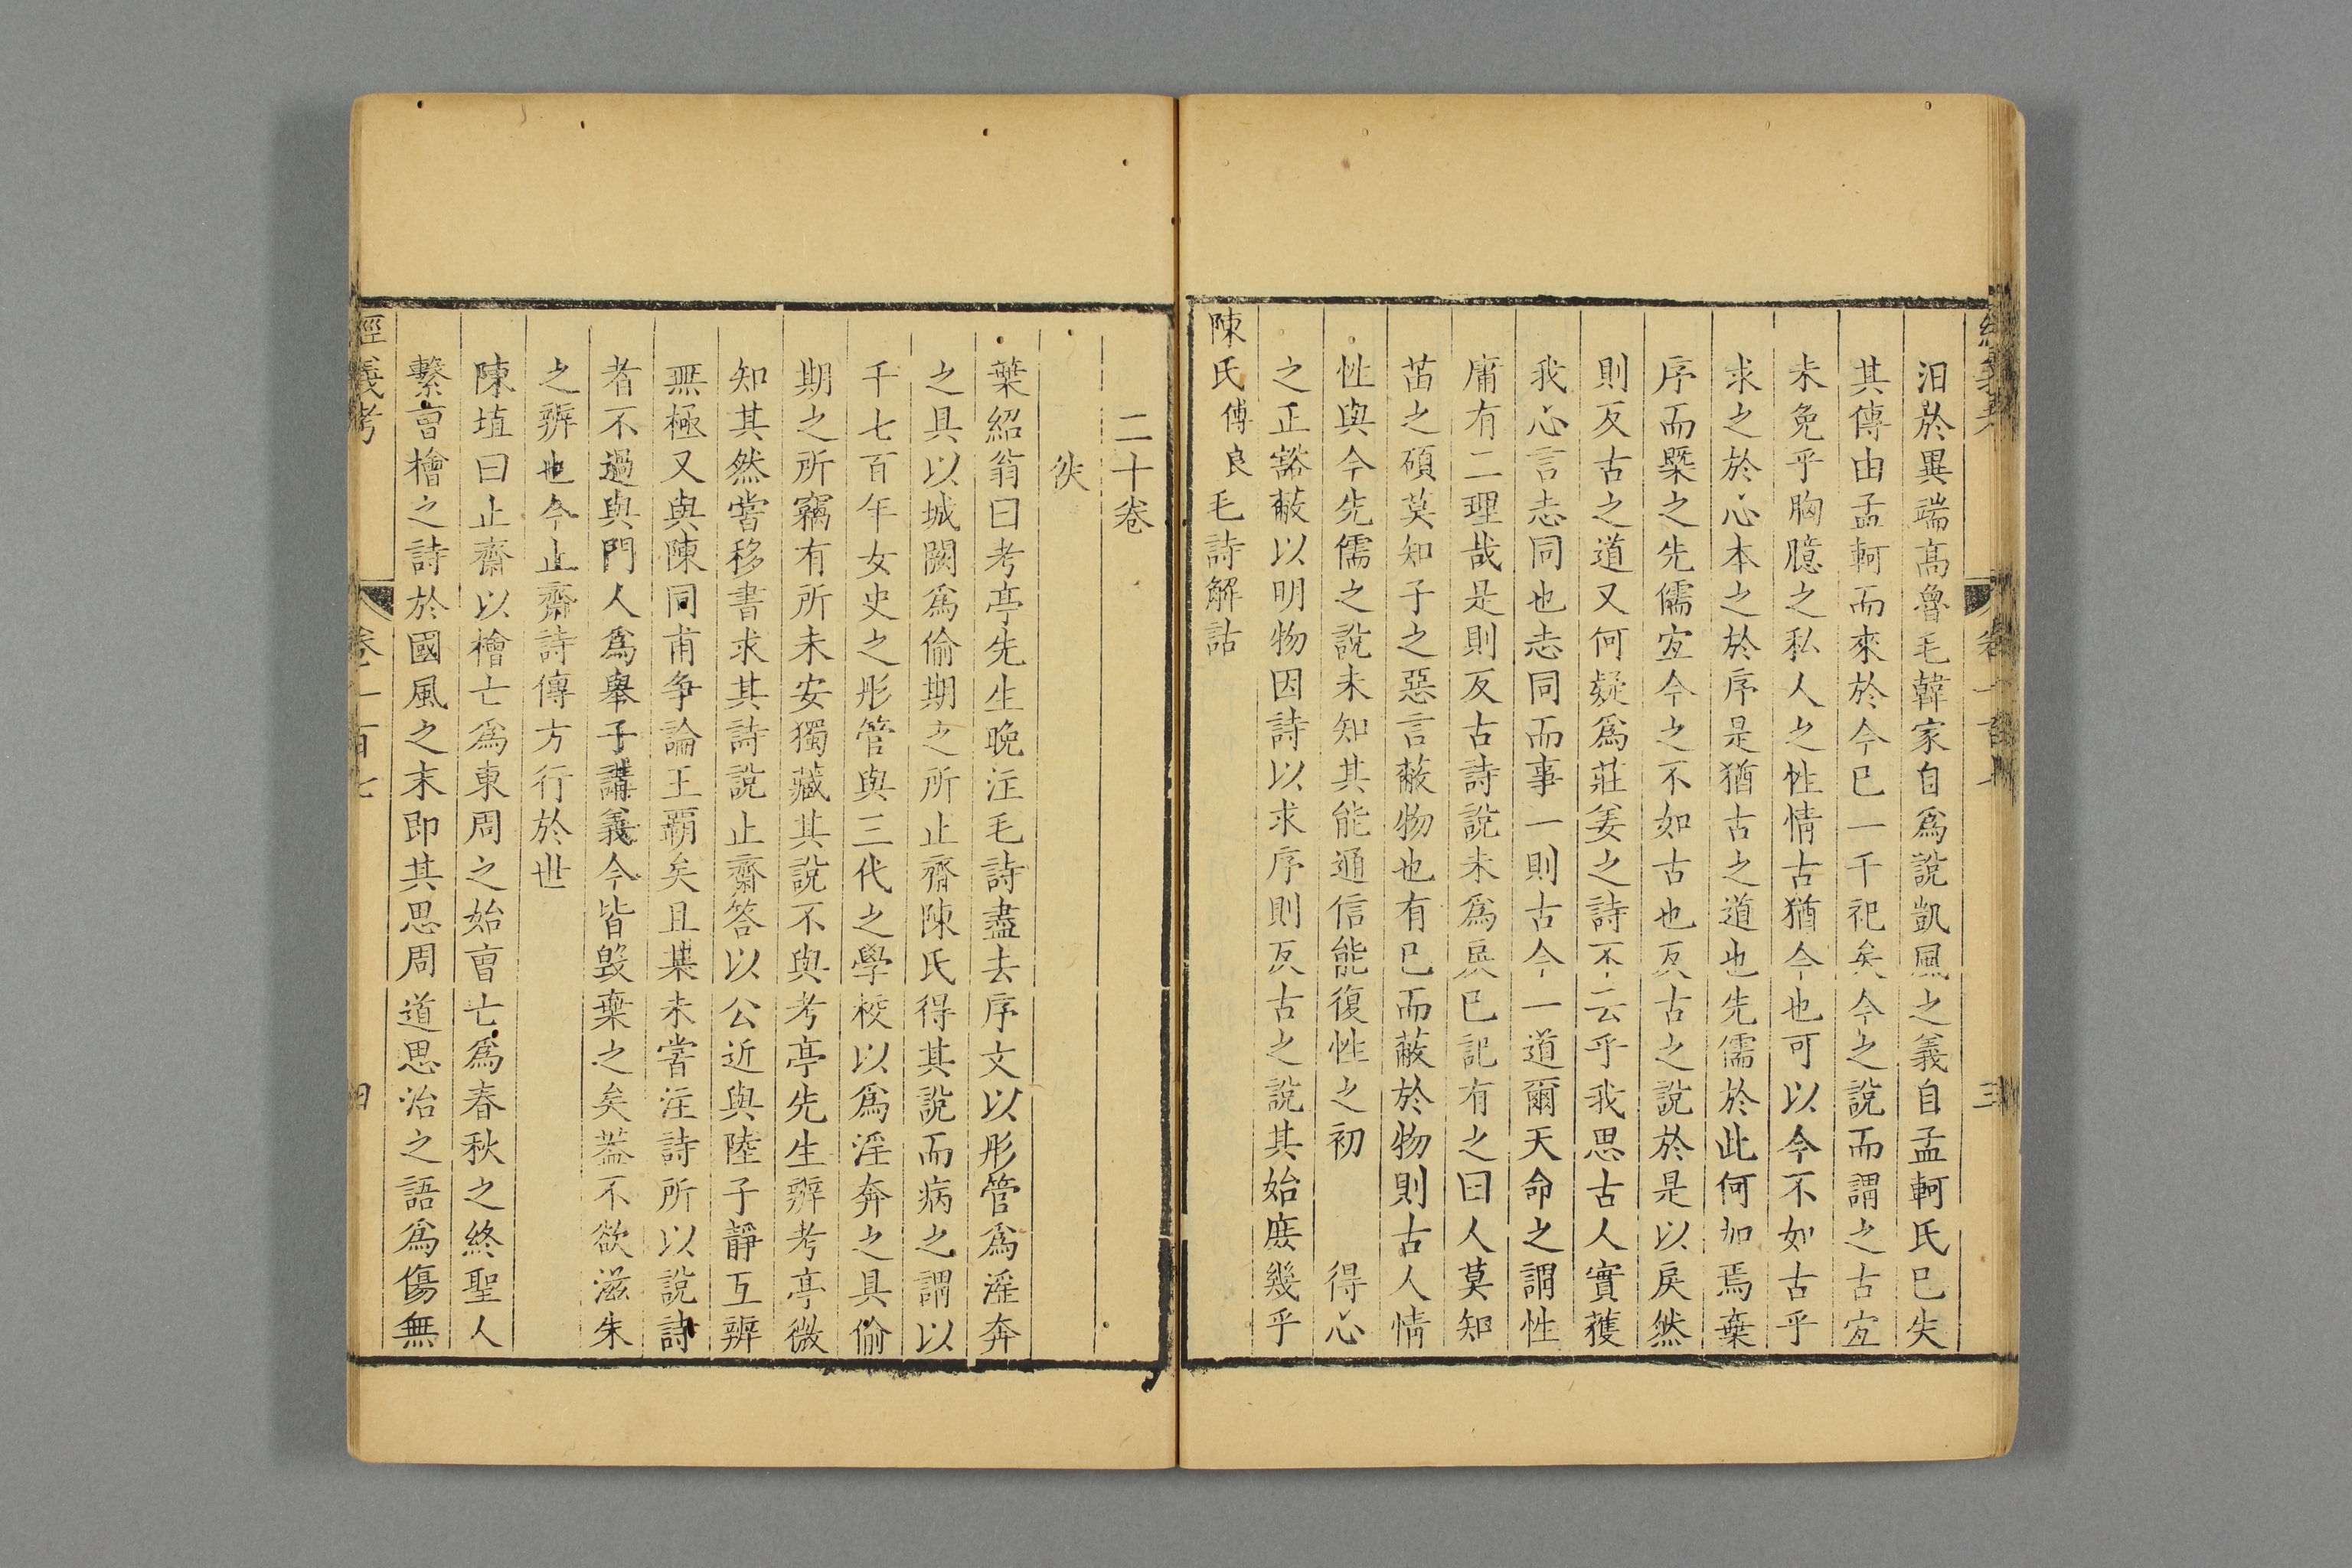 經義考 卷一百七 三
汨於異端髙魯毛韓家自爲說凱風之義自孟軻氏已失
其傳由孟軻而來於今已一千祀矣今之說而謂之古宐
未免乎胸臆之私人之性情古猶今也可以今不如古乎
求之於心本之於序是猶古之道也先儒於此何加焉棄
序而槩之先儒宐今之不如古也反古之說於是以戾然
則反古之道又何疑爲莊姜之詩不云乎我思古人實獲
我心言志同也志同而事一則古今一道爾天命之謂性
庸有二理哉是則反古詩說未爲戾已記有之曰人莫知
苗之碩莫知子之惡言蔽物也有已而蔽於物則古人情
性與今先儒之說未知其能通信能復性之初　得心
之正豁蔽以明物因詩以求序則反古之說其始庶幾乎
陳氏傅良毛詩解詁
二十卷
佚
葉紹翁曰考亭先生晚注毛詩盡去序文以彤管爲淫奔
之具以城闕爲偷期之所止齋陳氏得其說而病之謂以
千七百年女史之彤管與三代之學校以爲淫奔之具偷
期之所竊有所未安獨藏其說不與考亭先生辨考亭微
知其然嘗移書求其詩說止齋答以公近與陸子靜互辨
無極又與陳同甫争論王覇矣且某未嘗注詩所以說詩
者不過與門人爲舉子講義今皆毀棄之矣葢不欲滋朱
之辨也今止齋詩傳方行於世
陳埴曰止齋以檜亡爲東周之始曺亡爲春秋之終聖人
繫曺檜之詩於國風之末即其思周道思治之語爲傷無
經義考 卷一百七 四